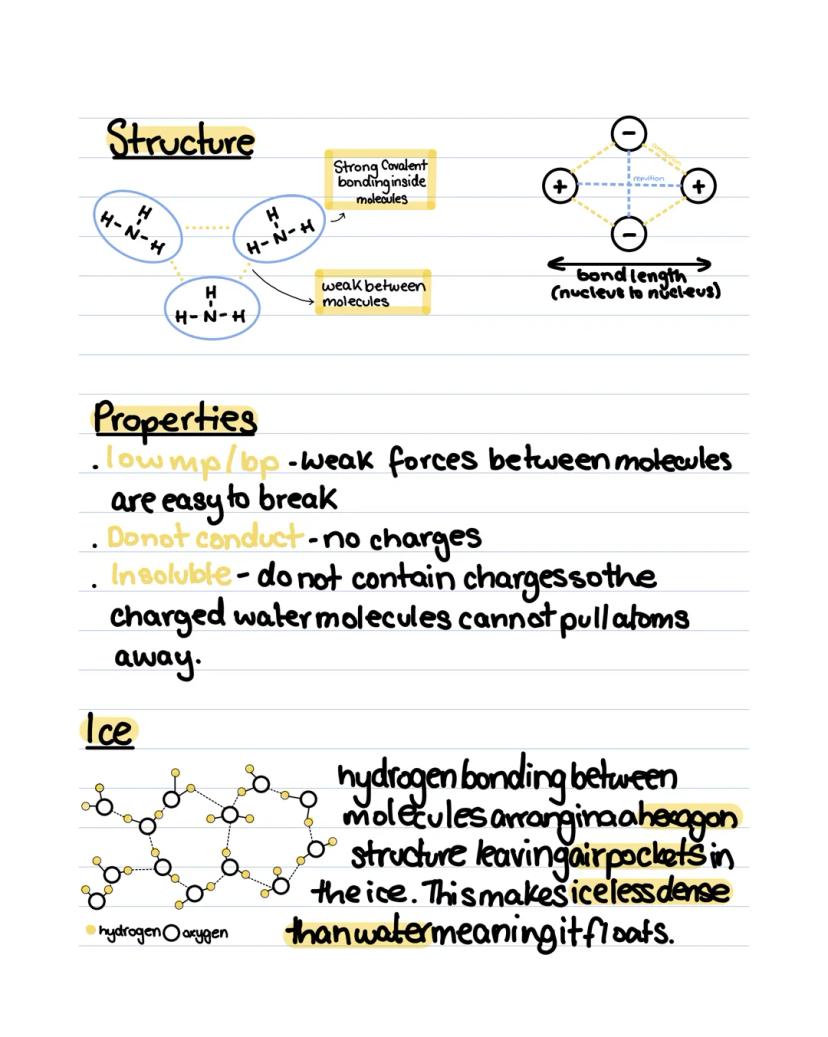 Structure
Strong Covalent
bonding inside
molecules
H
H-N-H
H
H-N-H
H
H-N-H
weak between
molecules
-
attraction
+
repultion
+
-
bond length
(nucleus to nucleus)
Properties
. low mp/bp - weak forces between molecules
are easy to break
. Do not conduct - no charges
. Insoluble - do not contain charges so the
charged water molecules cannot pull atoms
away.
Ice
hydrogen bonding between
molecules arranging in a hexagon
structure leaving air pockets in
the ice. This makes ice less dense
than water meaning it floats.
hydrogen oxygen